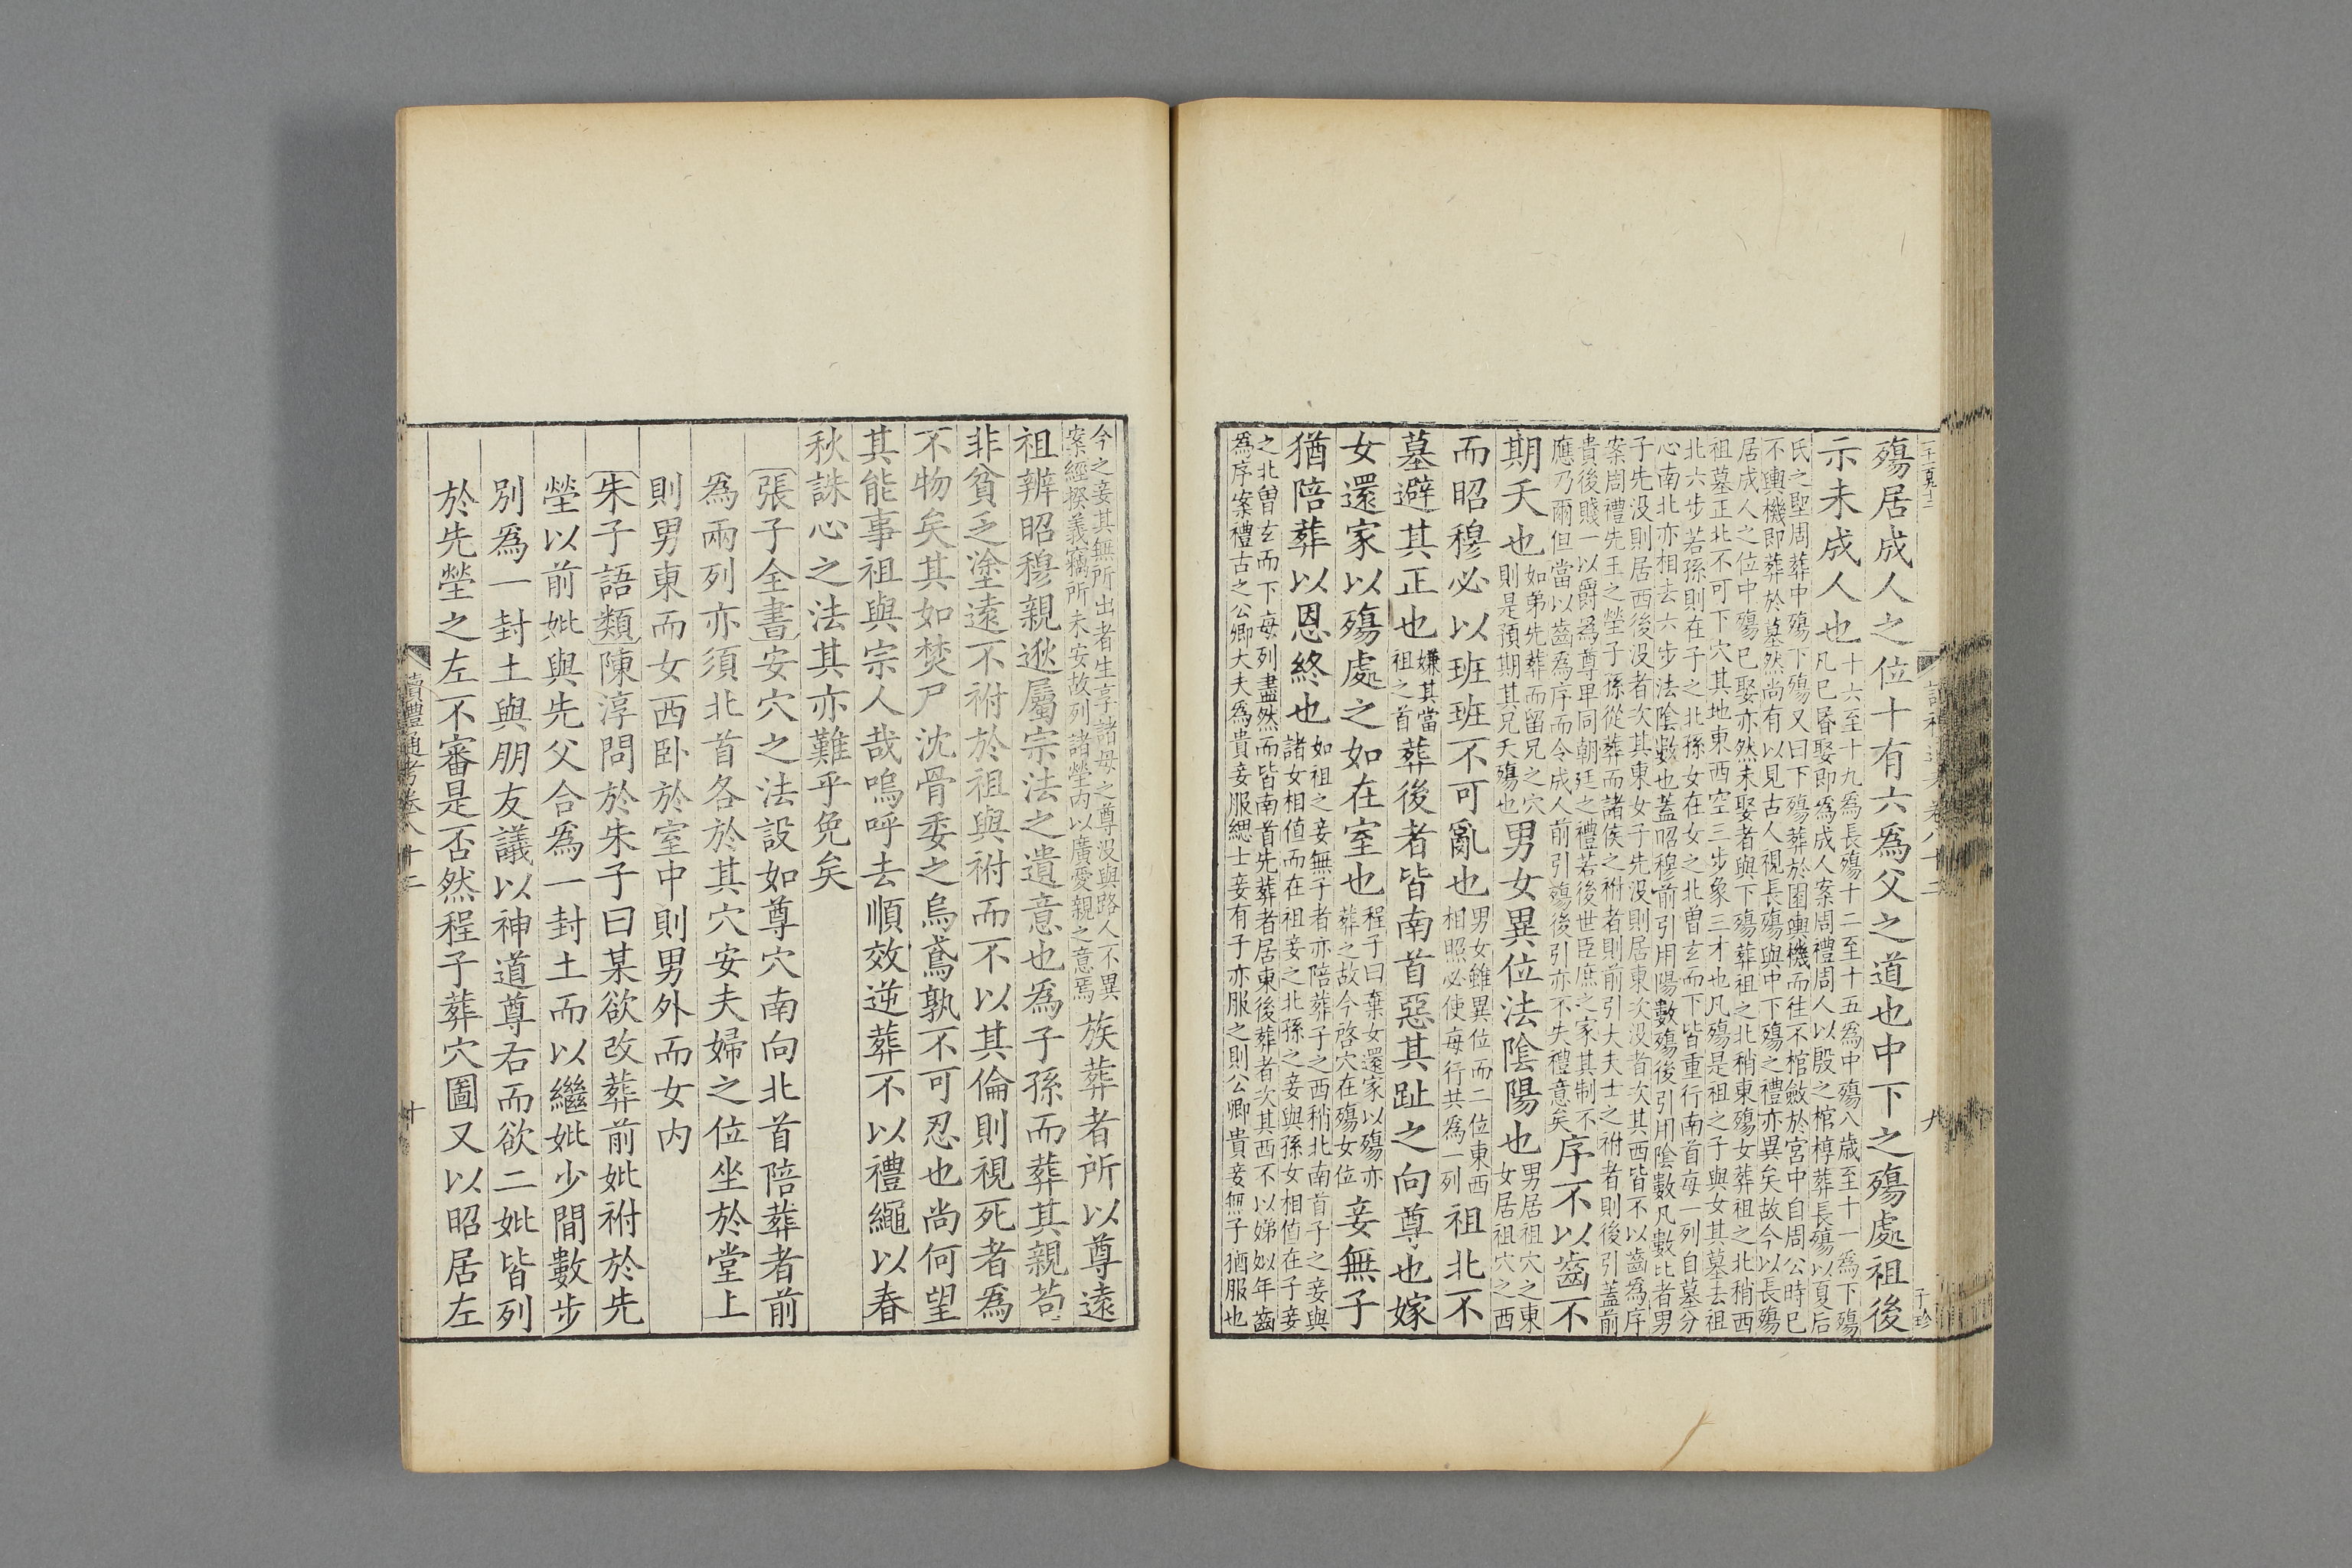 殤居成人之位十有六爲父之道也中下之殤處祖後
示未成人也
十六至十九爲長殤十二至十五爲中殤八歳至十一爲下殤
凡巳㛰娶即爲成人案周禮周人以殷之棺椁葬長殤以夏后
氏之聖周葬中殤下殤又曰下殤葬於園輿機而往不棺斂於宮中自周公時已
不輿機即葬於墓然尚有以見古人視長殤與中下殤之禮亦異矣故今以長殤
居成人之位中殤已娶亦然未娶者與下殤葬祖之北稍東殤女葬祖之北稍西
祖墓正北不可下穴其地東西空三步象三才也凡殤是祖之子與女其墓去祖
北六步若孫則在子之北孫女在女之北曽玄而下皆重行南首每一列自墓分
心南北亦相去六步法陰數也蓋昭穆前引用陽數殤後引用陰數凡數比者男
子先没則居西後没者次其東女子先没則居東次没者次其西皆不以齒爲序
案周禮先王之塋子孫從葬而諸侯之祔者則前引大夫士之祔者則後引蓋前
貴後賤一以爵爲尊卑同朝廷之禮若後世臣庶之家其制不
應乃爾但當以齒爲序而令成人前引殤後引亦不失禮意矣
序不以齒不
期夭也
如弟先葬而留兄之穴
則是預期其兄夭殤也
男女異位法陰陽也
男居祖穴之東
女居祖穴之西
而昭穆必以班班不可亂也
男女雖異位而二位東西
相照必使每行共爲一列
祖北不
墓避其正也
嫌其當
祖之首
葬後者皆南首惡其趾之向尊也嫁
女還家以殤處之如在室也
程子曰棄女還家以殤亦
葬之故今啓穴在殤女位
妾無子
猶陪葬以恩終也
如祖之妾無子者亦陪葬子之西稍北南首子之妾與
諸女相值而在祖妾之北孫之妾與孫女相值在子妾
之北曽玄而下每列盡然而皆南首先葬者居東後葬者次其西不以娣姒年齒
爲序案禮古之公卿大夫爲貴妾服緦士妾有子亦服之則公卿貴妾無子猶服也
今之妾其無所出者生享諸母之尊没與路人不異
案經揆義竊所未安故列諸塋内以廣愛親之意焉
族葬者所以尊遠
祖辨昭穆親逖屬宗法之遺意也爲子孫而葬其親苟
非貧乏塗遠不祔於祖與祔而不以其倫則視死者爲
不物矣其如焚尸沈骨委之烏鳶孰不可忍也尚何望
其能事祖與宗人哉嗚呼去順效逆葬不以禮繩以春
秋誅心之法其亦難乎免矣
張子全書安穴之法設如尊穴南向北首陪葬者前
爲兩列亦須北首各於其穴安夫婦之位坐於堂上
則男東而女西卧於室中則男外而女内
朱子語類陳淳問於朱子曰某欲改葬前妣祔於先
塋以前妣與先父合爲一封土而以繼妣少間數步
別爲一封土與朋友議以神道尊右而欲二妣皆列
於先塋之左不審是否然程子葬穴圖又以昭居左
讀禮通考卷八十二
十